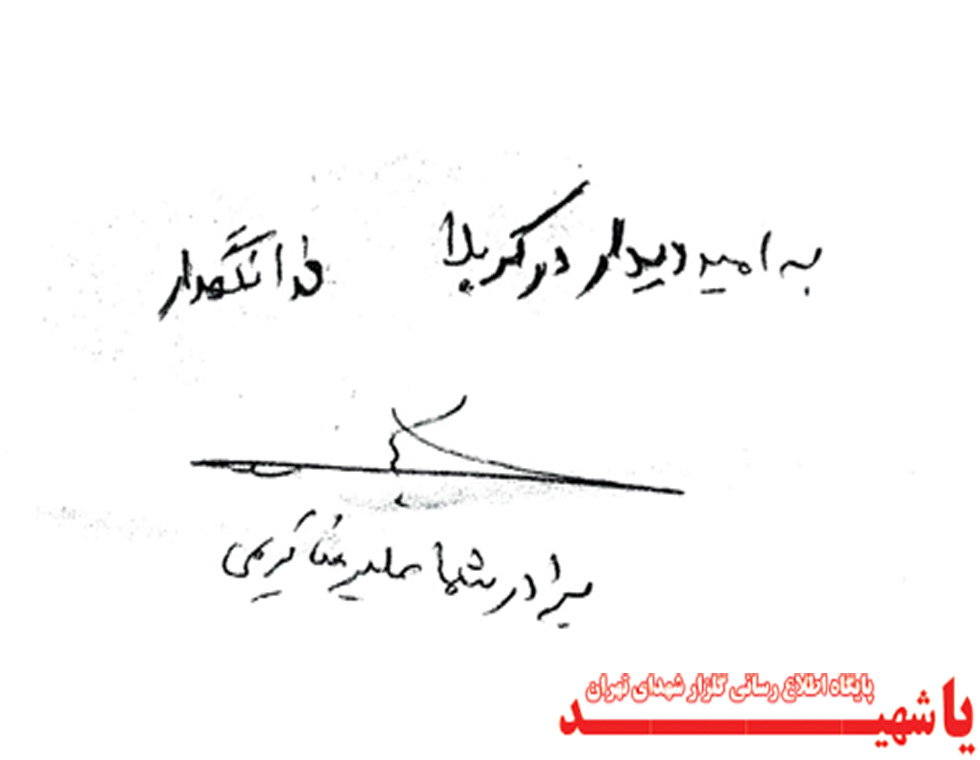 به امید دیدار در کربلا خدانگهدار
برادر شما علیرضا کریمی
پایگاه اطلاع رسانی گلزار شهدای تهران
یا شهید